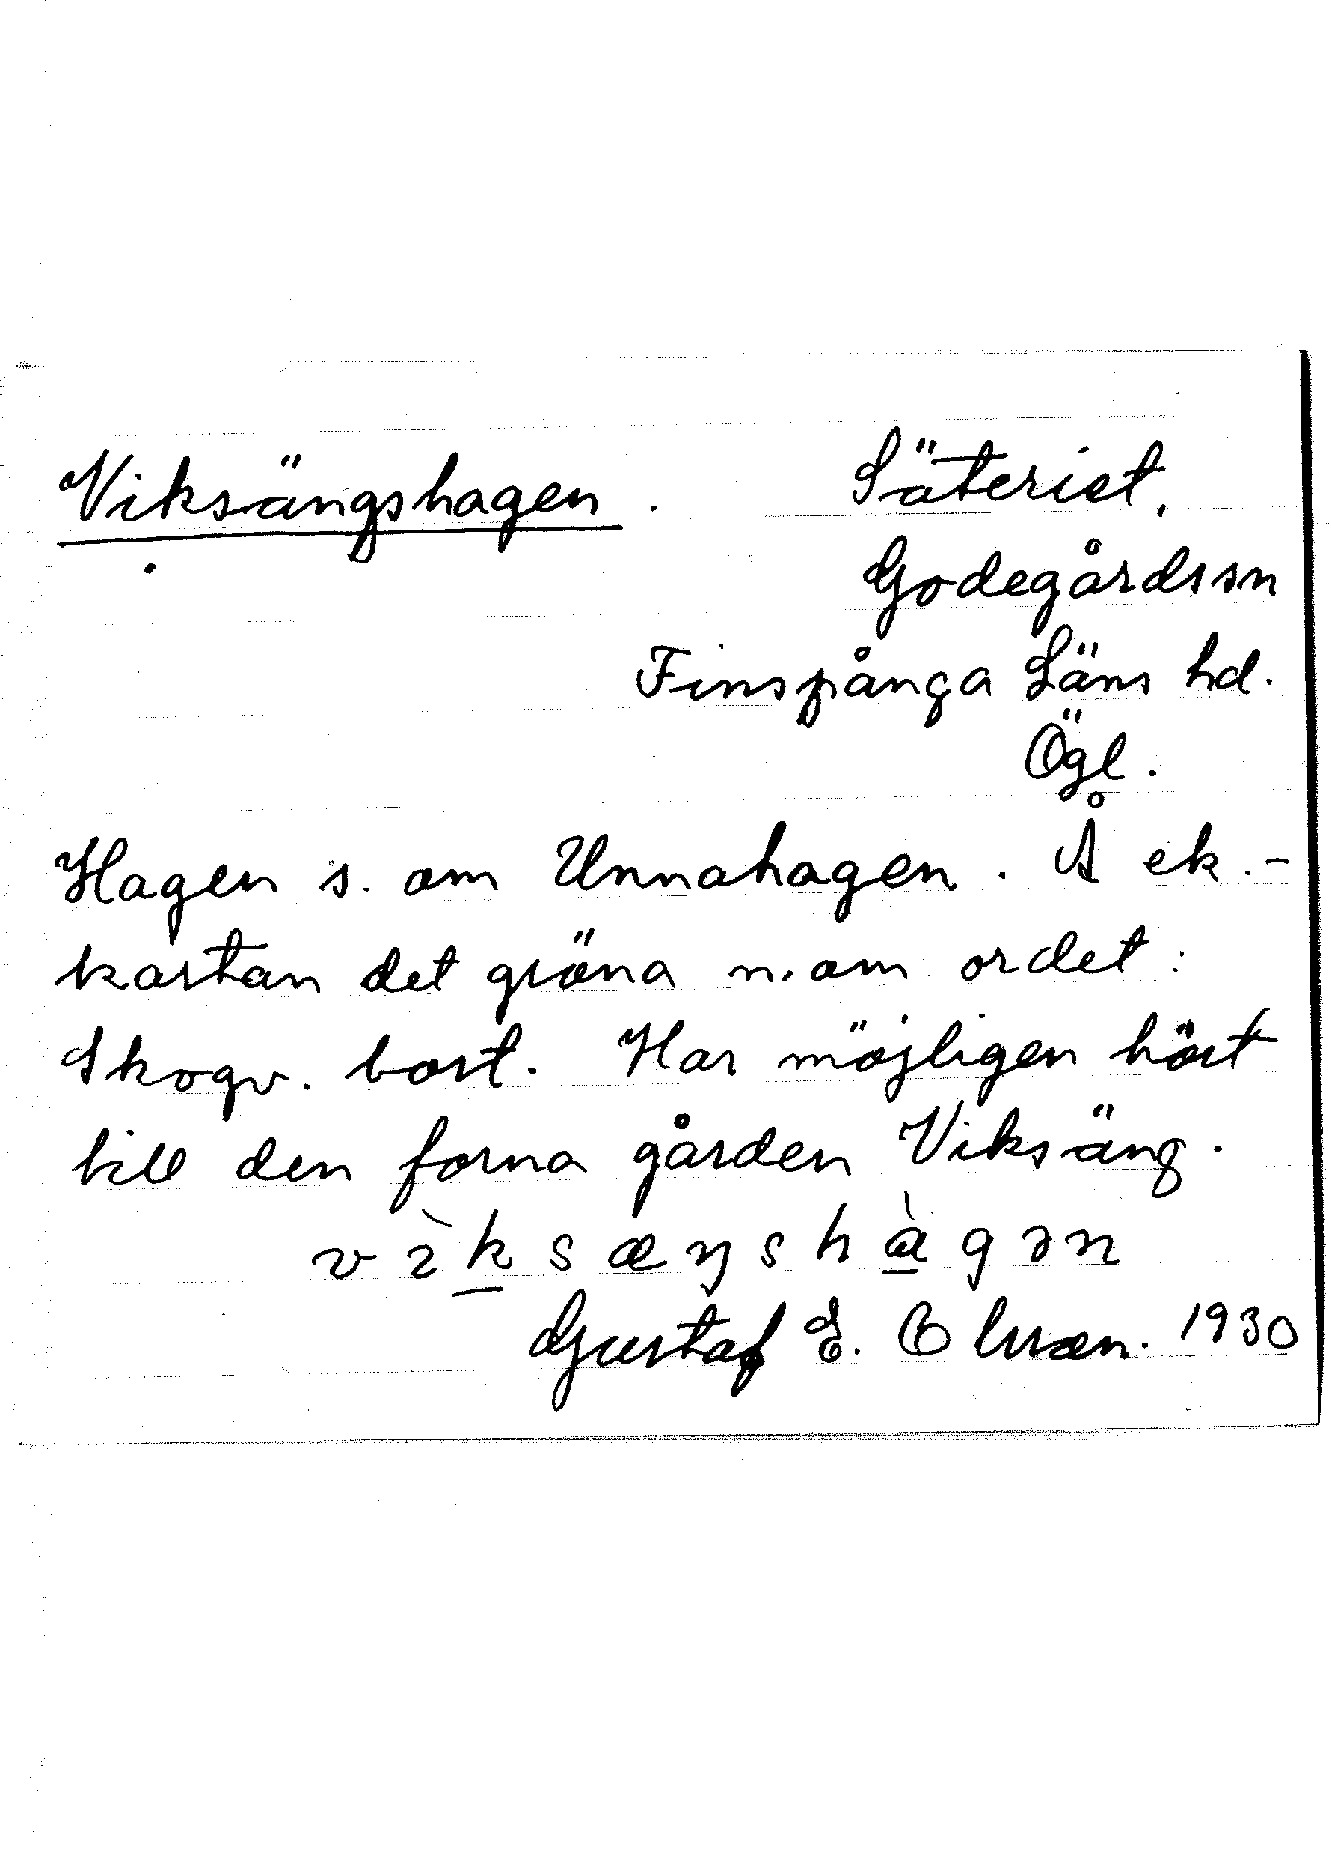 Viksängshagen. Säteriet,
Godegårds sn
Finspånga Läns hd.
Ögl.
Hagen s. om Unnahagen. Å ek.-
kartan det gröna n. om ordet:
Skogv. bost. Har möjligen hört
till den forna gården Viksäng.
vìksæŋshàgən
Gustaf E. Olsson. 1930